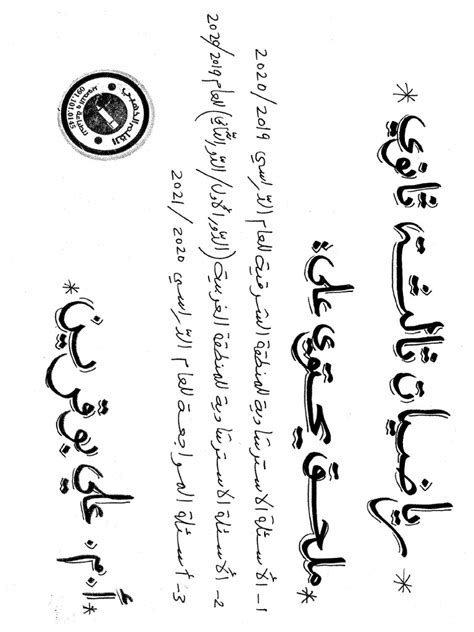 * رياضيات ثالثة ثانوي *
ملحق يحتوي على:
1 - الأسئلة الاسترشادية للمنطقة الشرقية للعام الدراسي 2019/2020
2 - الأسئلة الاسترشادية للمنطقة الغربية (الدور الأول/الدور الثاني) للعام 2019/2020
3 - أسئلة المراجعة للعام الدراسي 2020/2021
* أ.م. علي بوقرين *